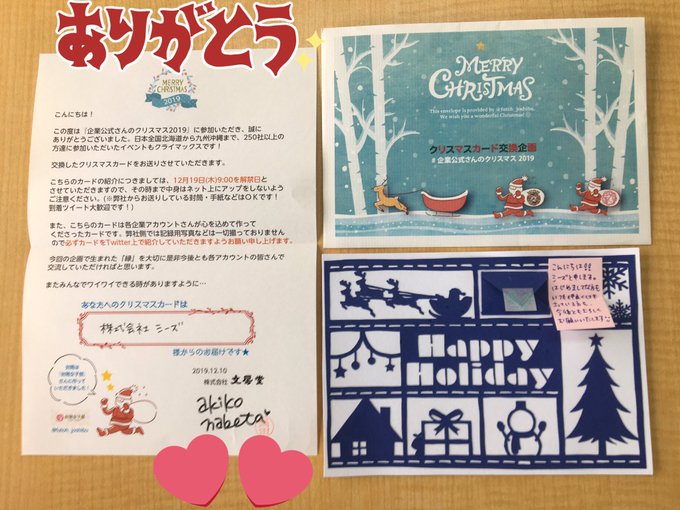 ありがとう
MERRY
CHRISTMAS
2019
こんにちは！
この度は「企業公式さんのクリスマス2019」に参加いただき、誠に
ありがとうございました。日本全国北海道から九州沖縄まで、250社以上の
方達に参加いただいたイベントもクライマックスです！
交換したクリスマスカードをお送りさせていただきます。
こちらのカードの紹介につきましては、12月19日(木)9:00を解禁日と
させていただきますので、その時まで中身はネット上にアップをしないよう
ご注意ください。(※弊社からお送りしている封筒・手紙などはOKです！
到着ツイート大歓迎です！)
また、こちらのカードは各企業アカウントさんが心を込めて作って
くださったカードです。弊社側では記録用写真などは一切撮っておりません
ので必ずカードをTwitter上で紹介していただきますようお願い申し上げます。
今回の企画で生まれた「縁」を大切に是非今後とも各アカウントの皆さんで
交流していただければと思います。
またみんなでワイワイできる時がありますように…
あなたへのクリスマスカードは
株式会社 シーズ
様からのお届けです★
2019.12.10
株式会社 文房堂
akiko
nabeta
封筒は
「封筒女子部」
さんに作って
いただきました！
封筒女子部
@futoh_joshibu
MERRY
CHRISTMAS
This envelope is provided by @futoh_joshibu.
We wish you a wonderful Christmas!
クリスマスカード交換企画
# 企業公式さんのクリスマス 2019
こんにちは!!
シーズと申します。
はじめましてですが
今後ともよろしく
お願いいたします
Happy
Holiday